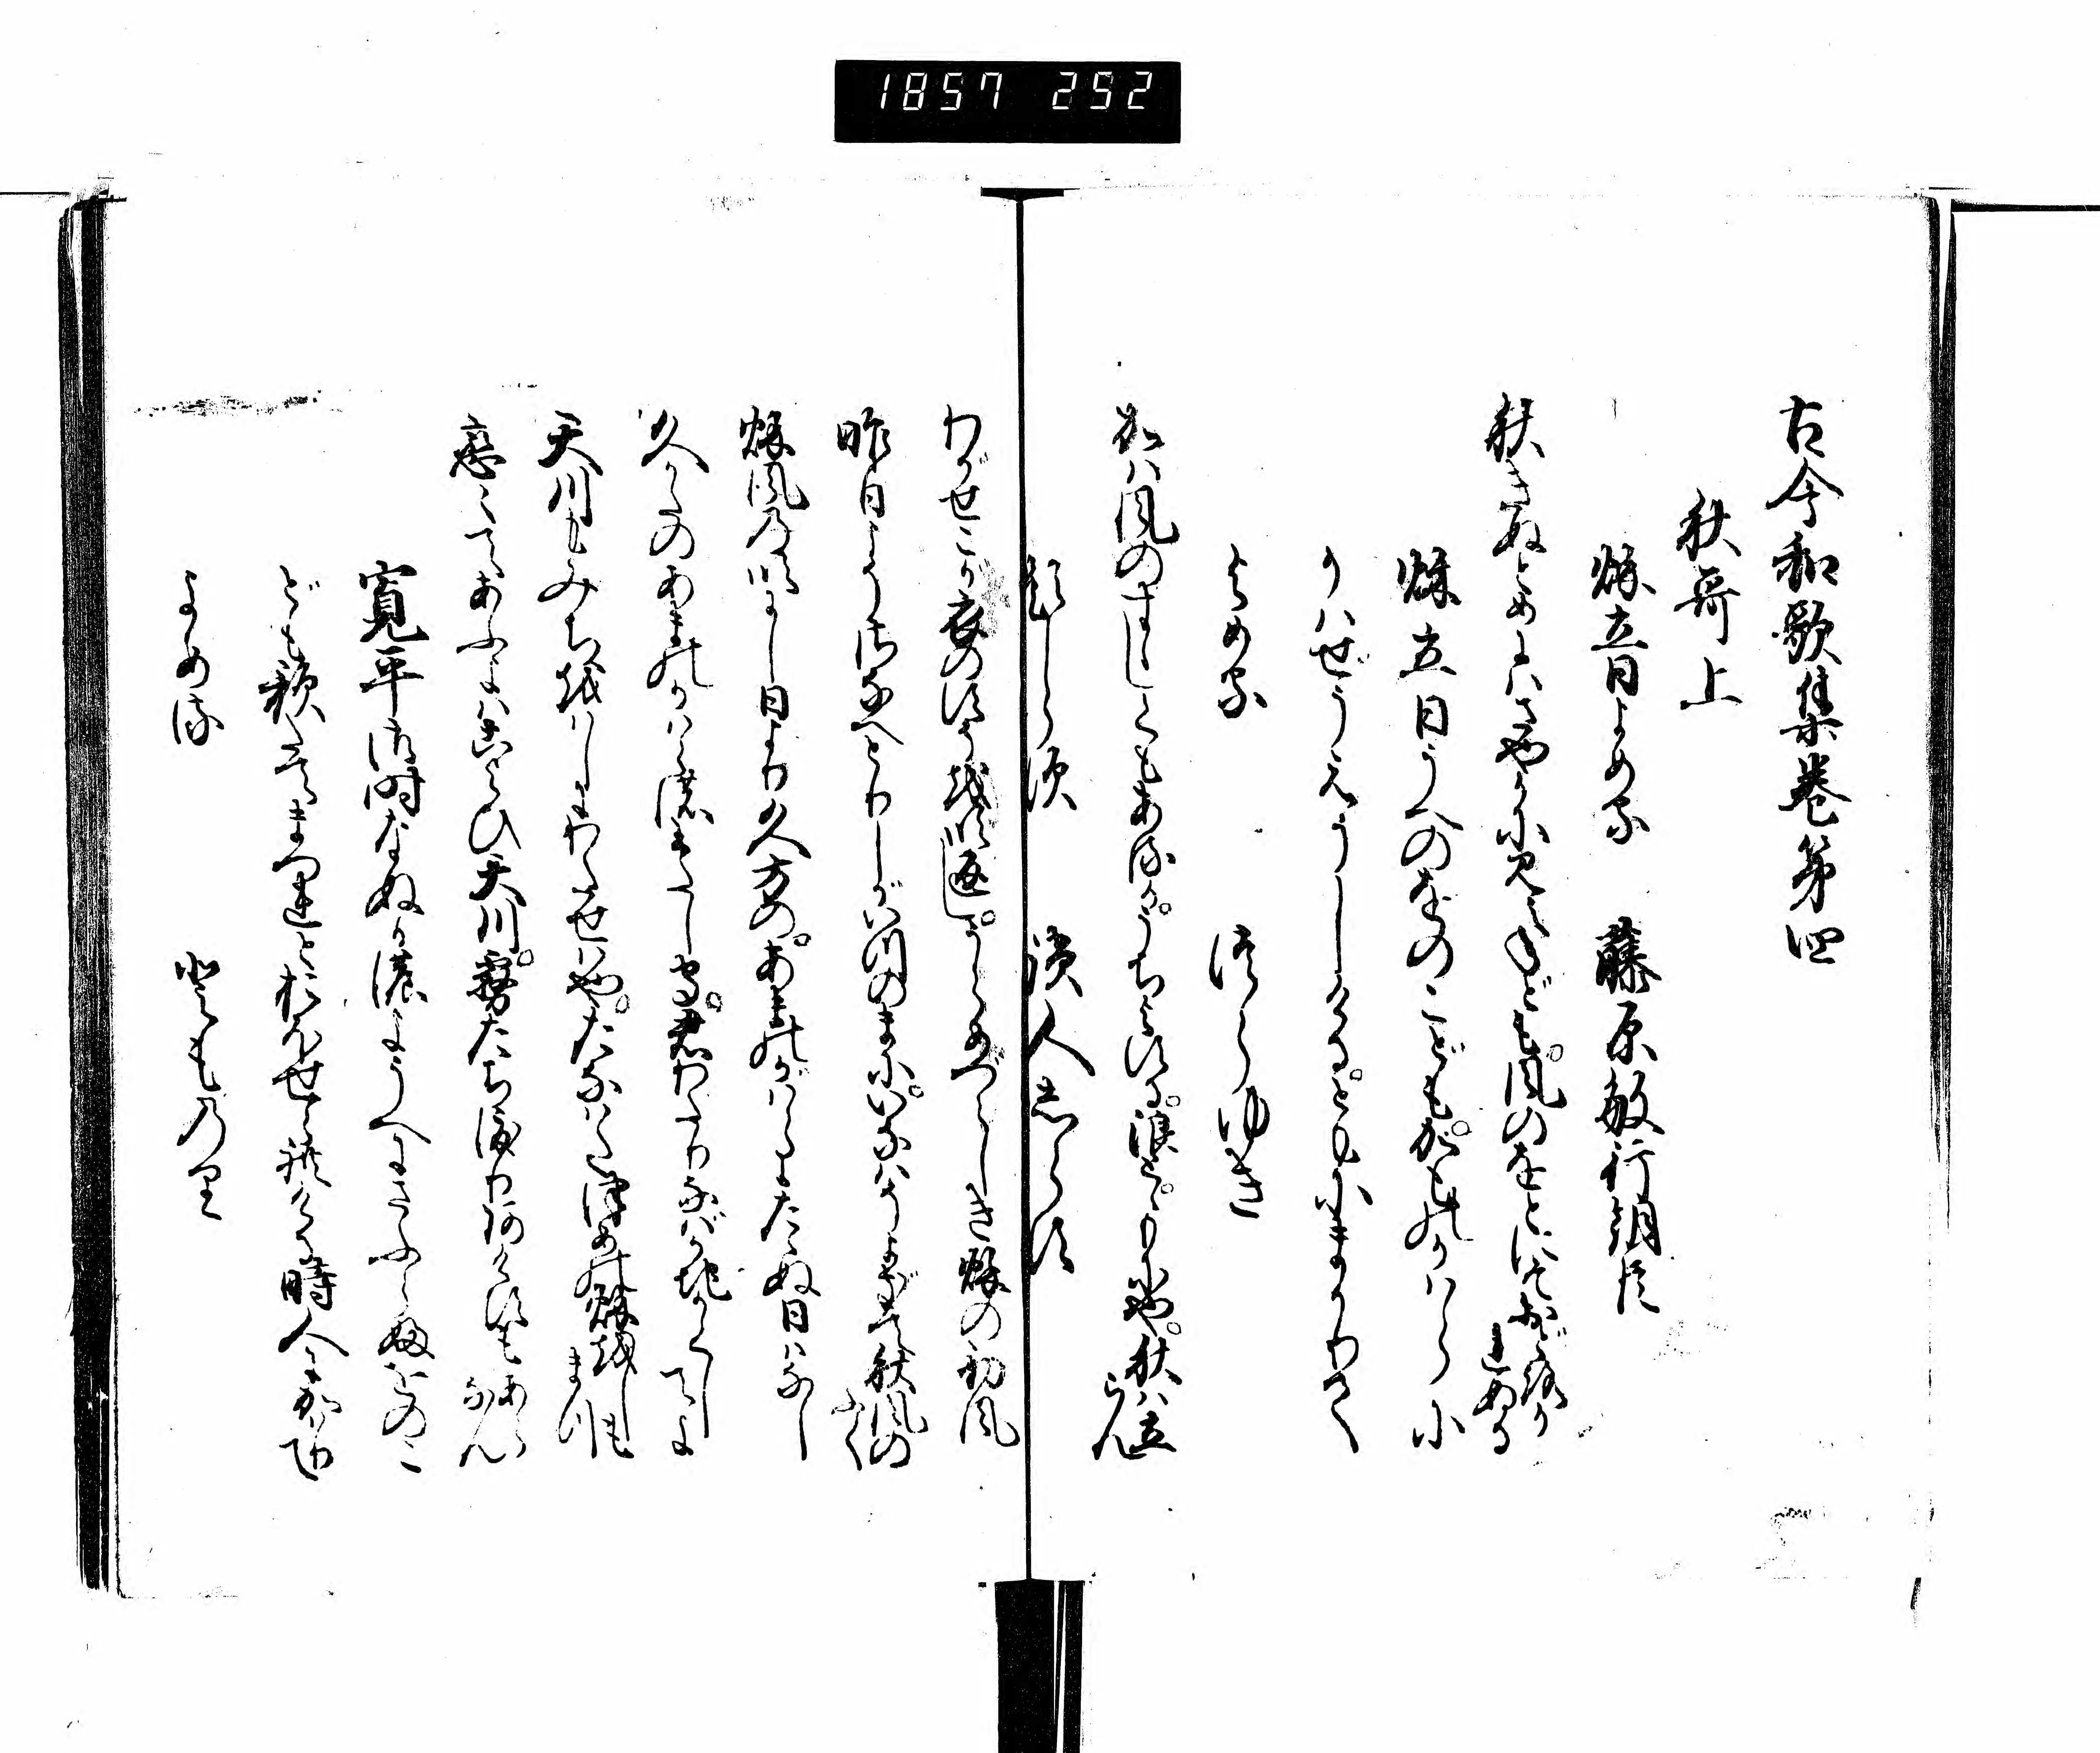 1857 252
古今和歌集巻第四
秋哥上
秌立日よめる　藤原敏行朝臣
秋きぬとめにハさやかに見えねども風のをとにぞおどろかれぬる
秌立日うへのをのこどもかものかハらに
かハせうえうしけるともにまかりて
よめる　つらゆき
かハ風のすゞしくもあるかうちよする浪とゝもにや秋ハ立らん
題しらす　讀人しらす
わがせこが衣のすそを吹返しうらめづらしき秌の初風
昨日こそさなへとりしがいつのまにいなはそよぎて秋風のふく
秌風の吹にし日より久方のあまのかハらにたゝぬ日ハなし
久かたのあまのかハらの渡し守君わたりなばかぢかくしてよ
天川もみちをはしにわたせハやたなハたつめの秌をしもまつ
恋〻てあふよハこよひ天川霧たち渡りあけすもあらなん
寛平御時なぬかのようへにさふらふをのこ
ども歌たてまつれとおほせられける時人にかハりて
よめる　とものり